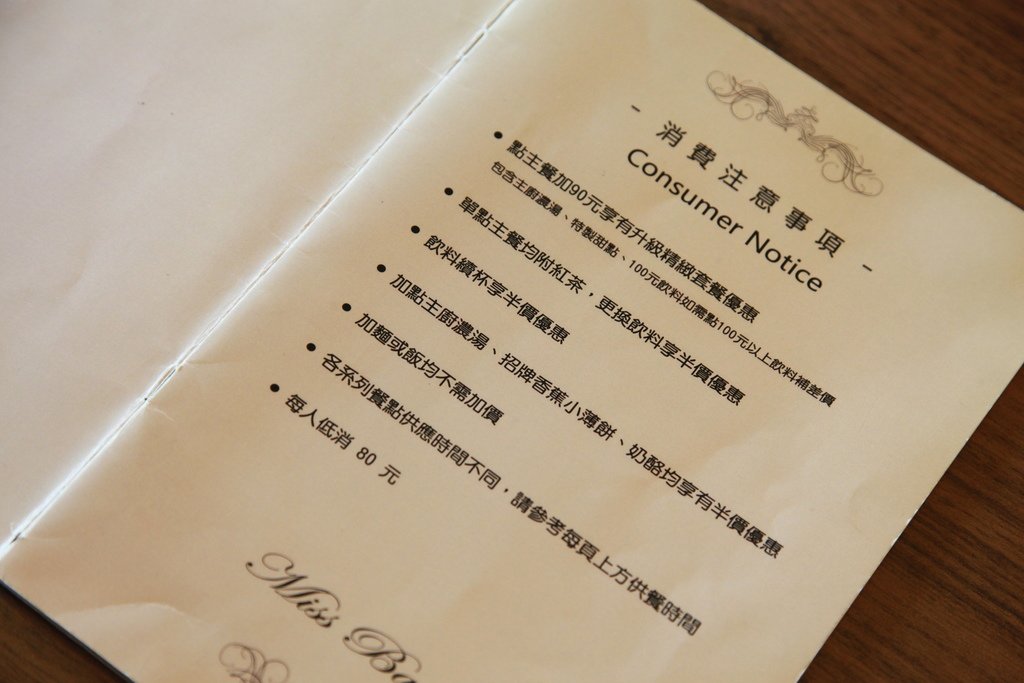 - 消費注意事項 -
Consumer Notice
• 點主餐加90元享有升級精緻套餐優惠
包含主廚濃湯、特製甜點、100元飲料如需點100元以上飲料補差價
• 單點主餐均附紅茶，更換飲料享半價優惠
• 飲料續杯享半價優惠
• 加點主廚濃湯、招牌香蕉小薄餅、奶酪均享有半價優惠
• 加麵或飯均不需加價
• 各系列餐點供應時間不同，請參考每頁上方供餐時間
• 每人低消 80 元
Miss